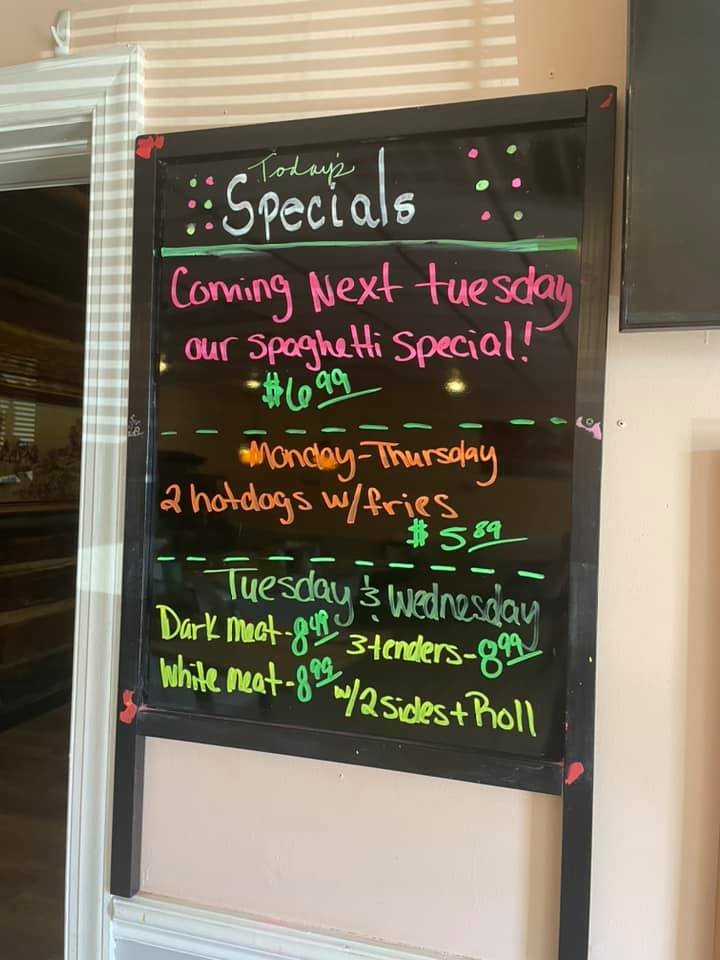 Today's
Specials
Coming Next tuesday
our spaghetti special!
$6.99
Monday-Thursday
2 hotdogs w/fries
$5.89
Tuesday & Wednesday
Dark meat-8.49 3 tenders-8.99
White meat-8.99 w/2 sides + Roll